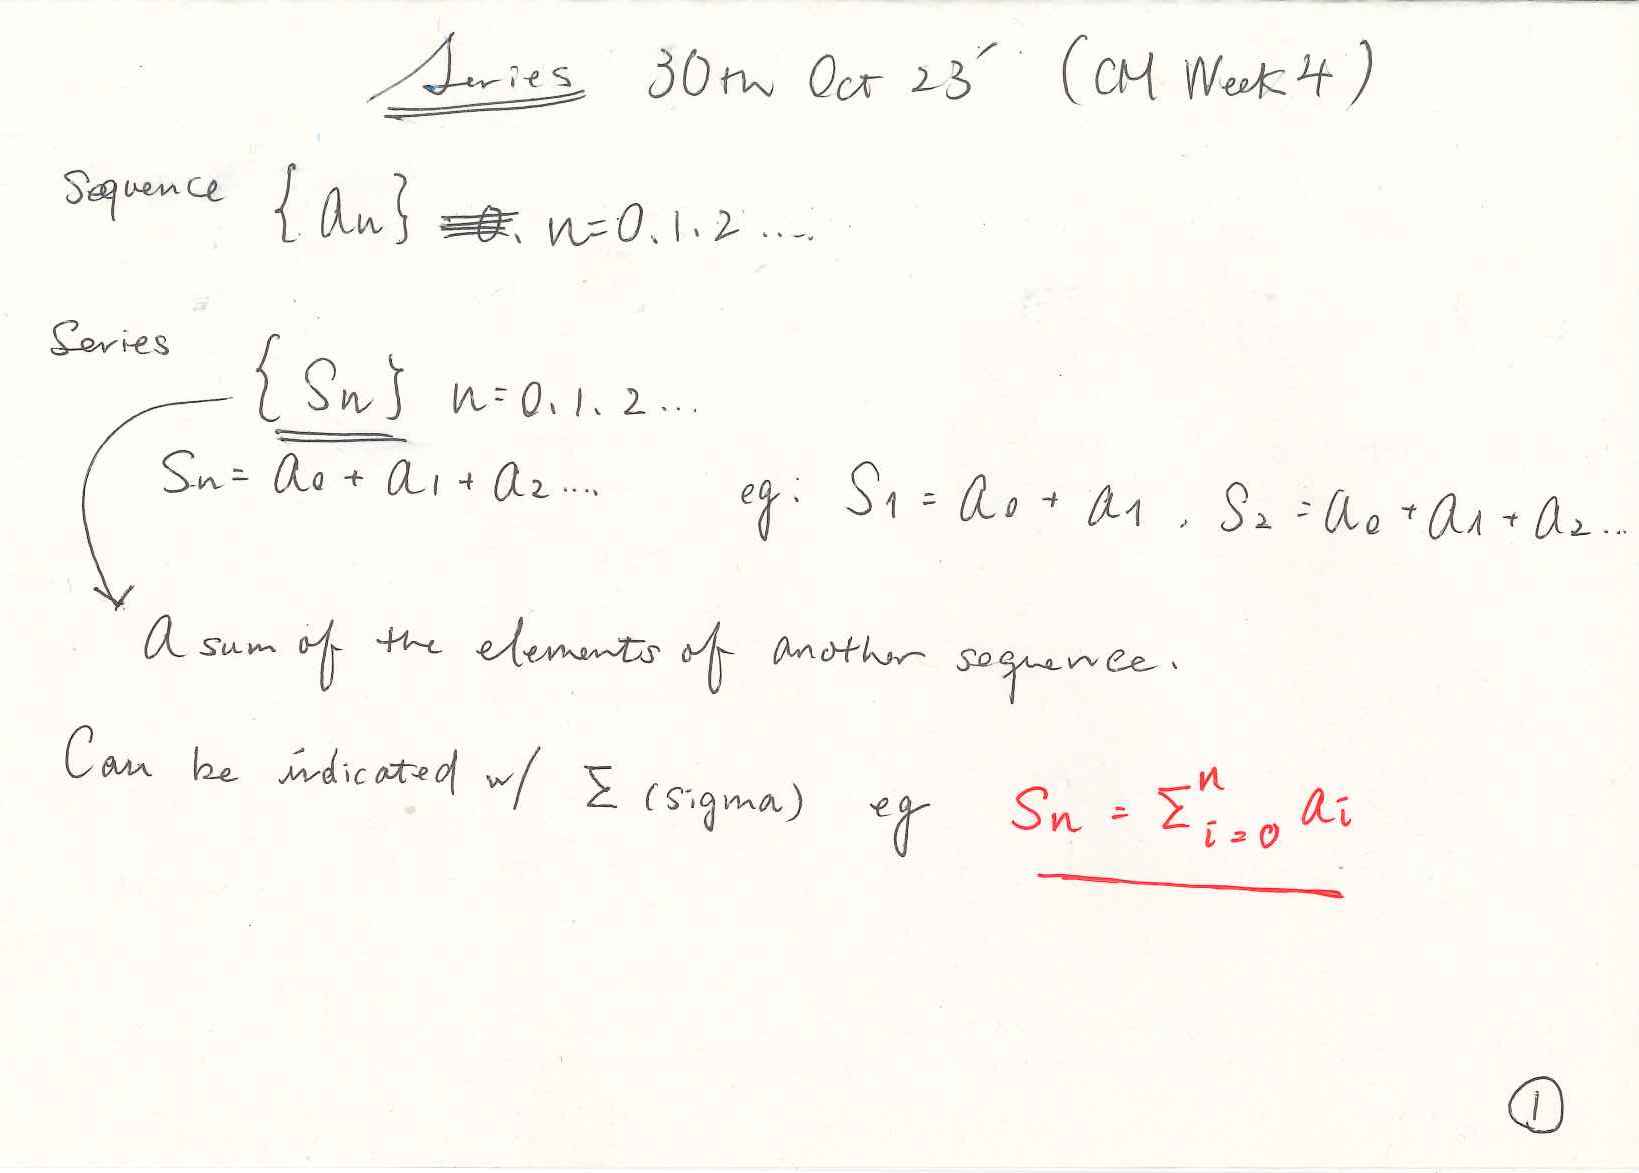 Series 30th Oct 23' (CM Week 4)
Sequence {an} n=0.1.2.....
Series
{Sn} n=0.1.2...
Sn = a0 + a1 + a2 .... eg: S1 = a0 + a1 , S2 = a0 + a1 + a2 ...
A sum of the elements of another sequence.
Can be indicated w/ Σ (sigma) eg Sn = Σⁿi=0 ai
1